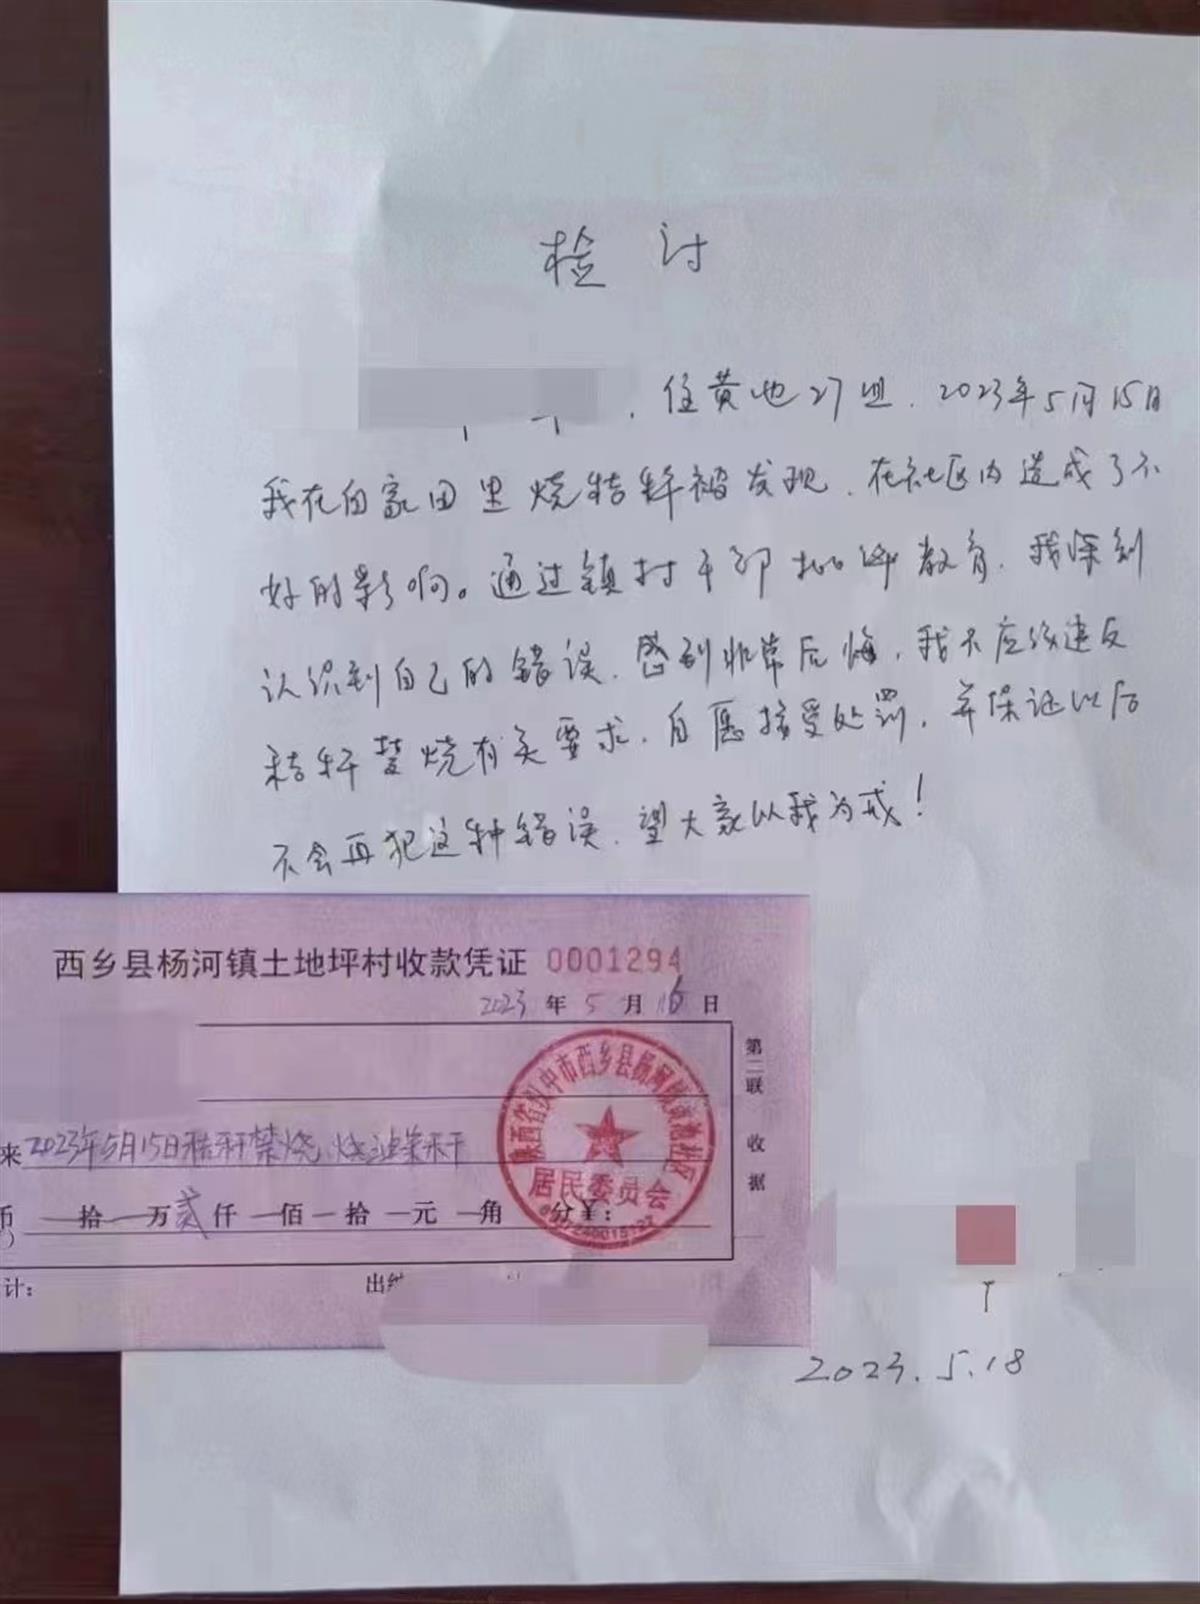 检讨
，住黄池27组，2023年5月15日
我在自家田里烧秸秆被发现，在社区内造成了不
好的影响。通过镇村干部批评教育，我深刻
认识到自己的错误，感到非常后悔，我不应该违反
秸秆禁烧有关要求，自愿接受处罚，并保证以后
不会再犯这种错误，望大家以我为戒！
西乡县杨河镇土地坪村收款凭证 0001294
2023年5月16日
来2023年5月15日秸秆禁烧，烧油菜禾干
币 一拾一万贰仟一佰一拾一元一角 分￥：
计： 出纳
第二联 收据
陕西省汉中市西乡县杨河镇黄池社区
居民委员会
2023.5.18